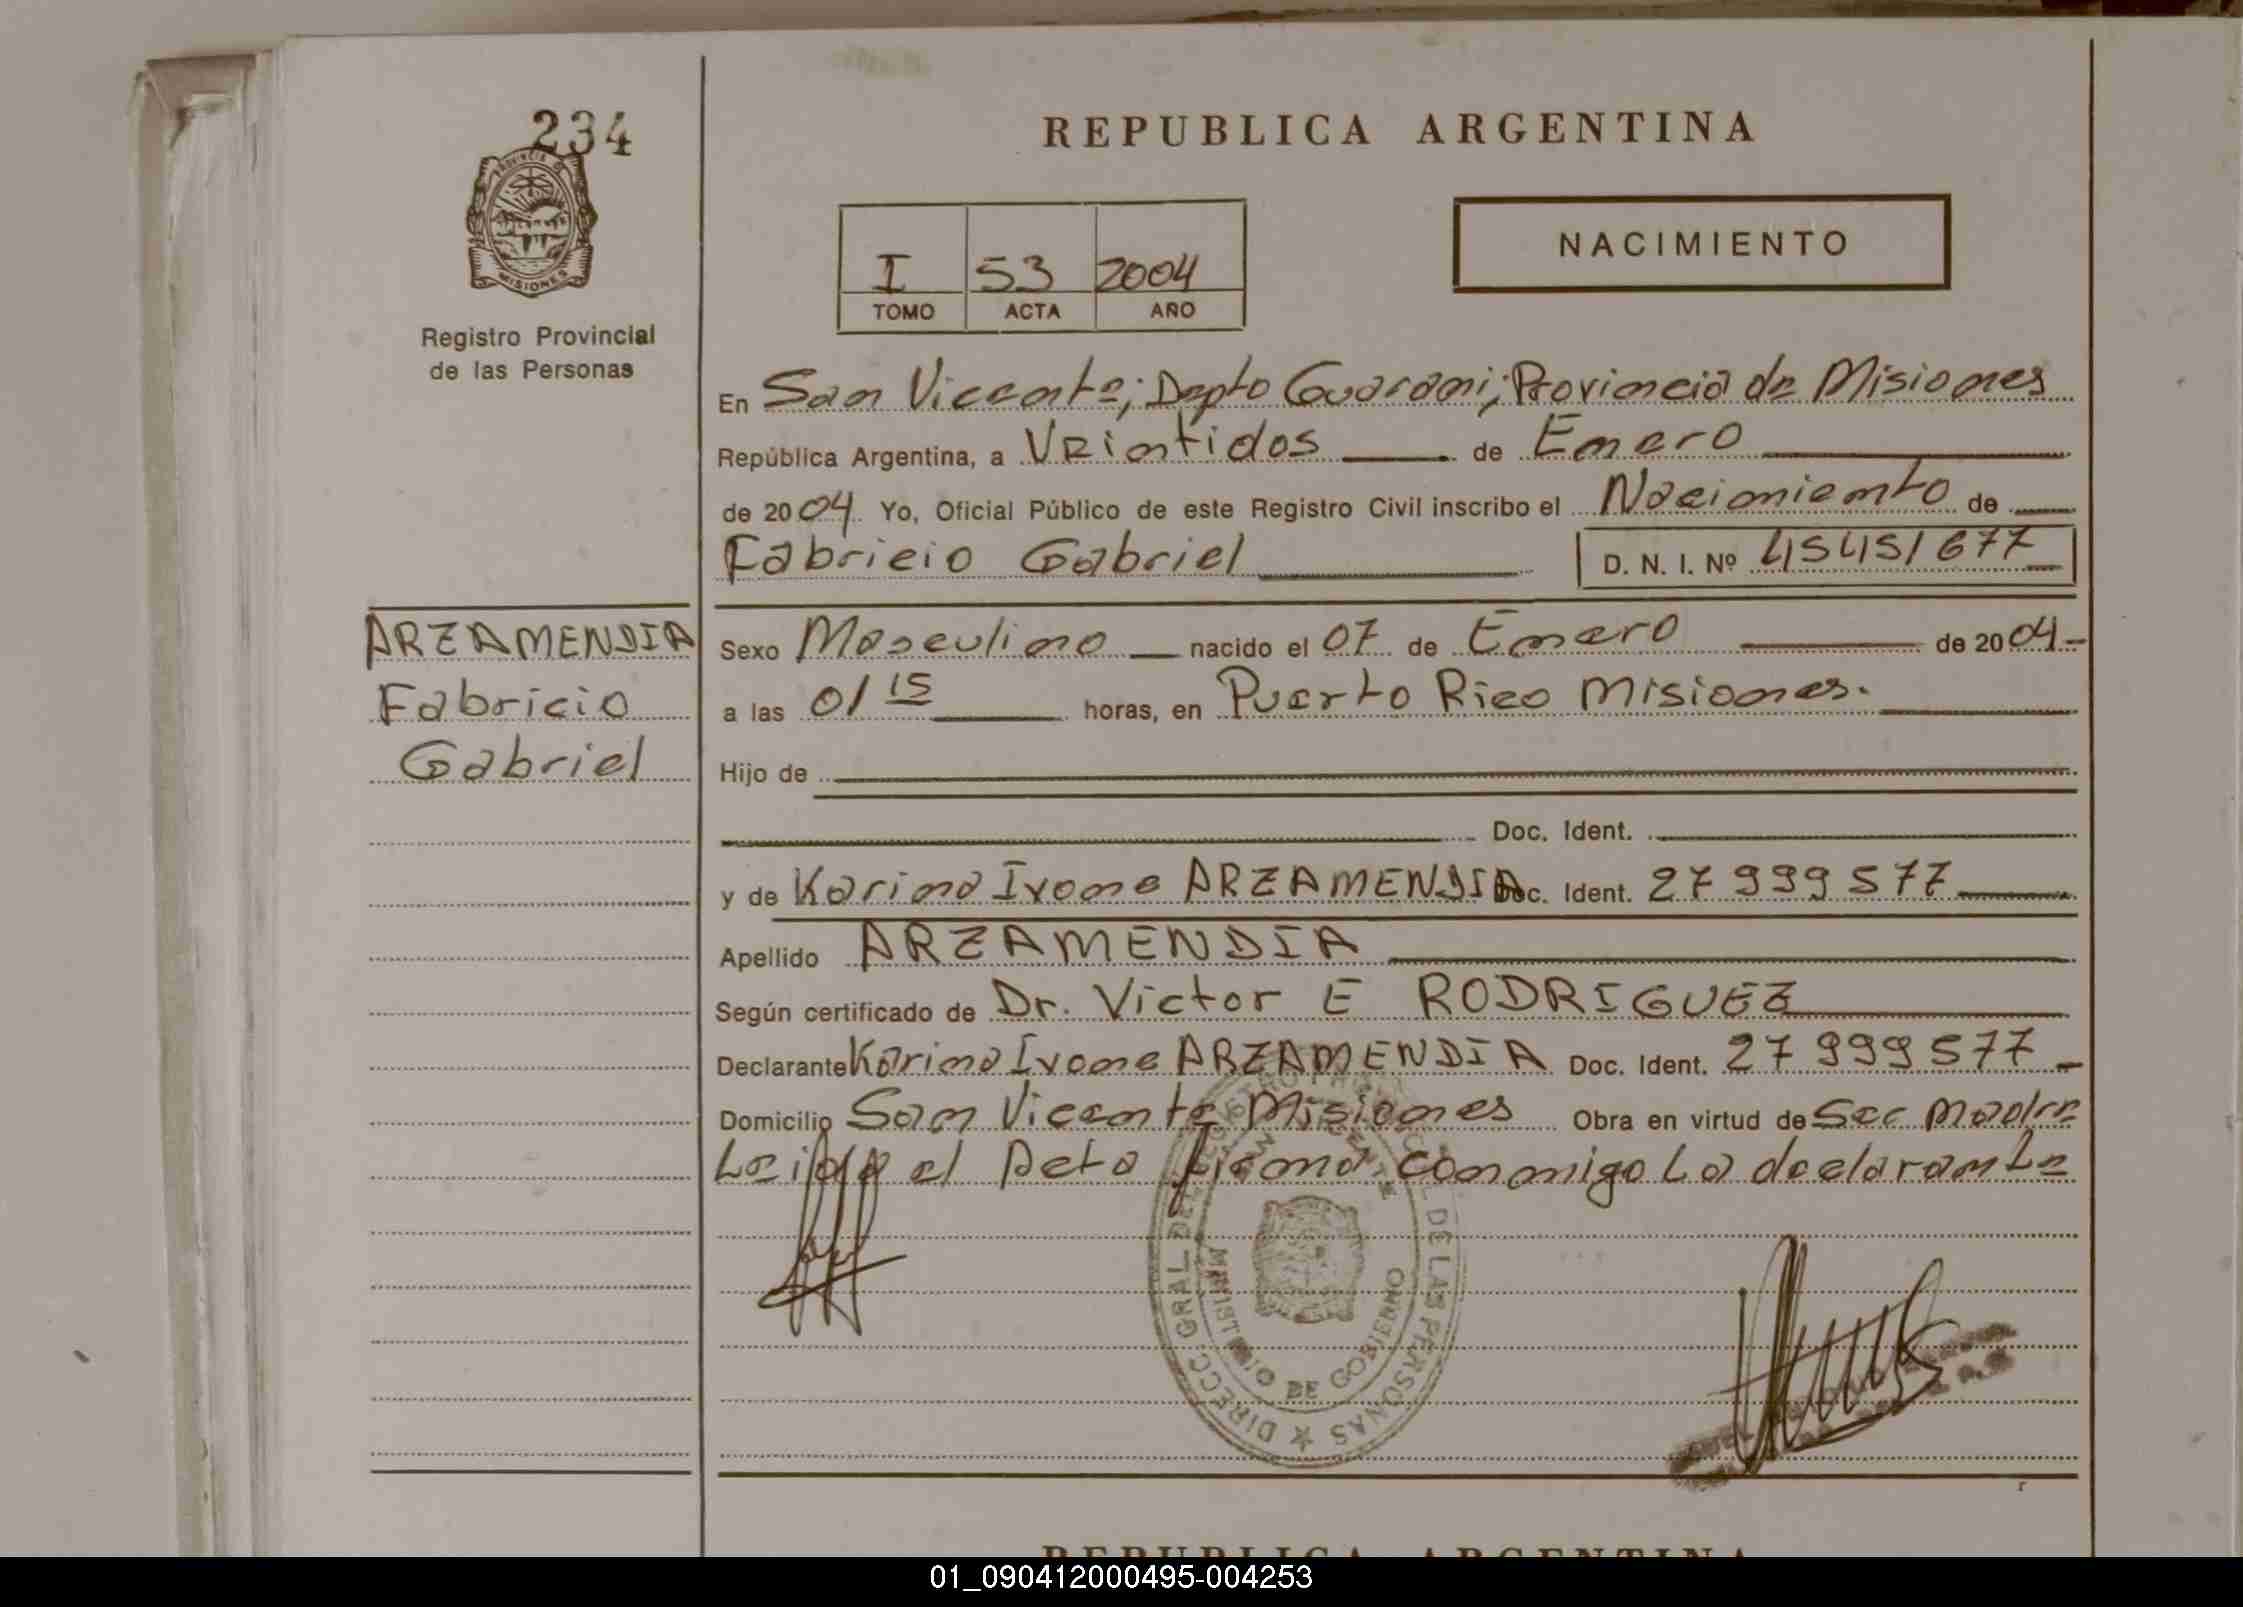 234
PROVINCIA DE
MISIONES
Registro Provincial
de las Personas
REPUBLICA ARGENTINA
I 53 2004
TOMO ACTA AÑO
NACIMIENTO
En San Vicente; Depto Guarani; Provincia de Misiones
República Argentina, a Veintidos de Enero
de 2004 Yo, Oficial Público de este Registro Civil inscribo el Nacimiento de
Fabricio Gabriel D. N. I. Nº 45451677
ARZAMENDIA
Fabricio
Gabriel
Sexo Masculino nacido el 07 de Enero de 2004
a las 01 15 horas, en Puerto Rico Misiones.
Hijo de
Doc. Ident.
y de Karina Ivone ARZAMENDIA Doc. Ident. 27 999 577
Apellido ARZAMENDIA
Según certificado de Dr. Victor E RODRIGUEZ
Declarante Karina Ivone ARZAMENDIA Doc. Ident. 27 999 577
Domicilio San Vicente Misiones Obra en virtud de Ser Madre
Leida el Acta firma conmigo La declarante
DIRECC. GRAL DEL REGISTRO PROVINCIAL DE LAS PERSONAS
MINISTERIO DE GOBIERNO
REPUBLICA ARGENTINA
01_090412000495-004253